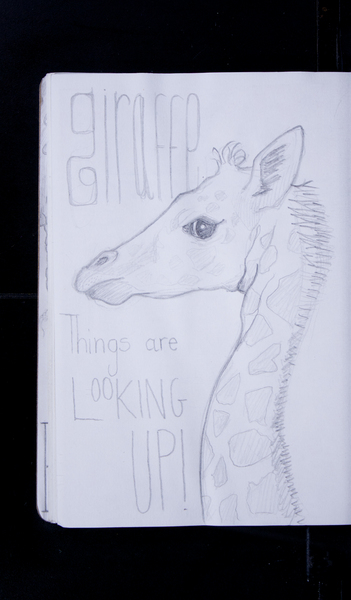 giraffe
Things are
LOOKING
UP!